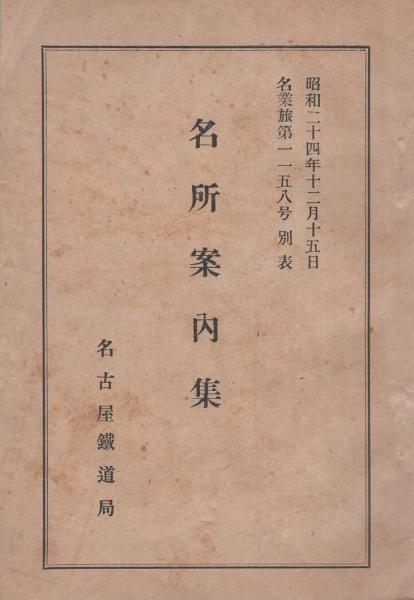 昭和二十四年十二月十五日
名業旅第一一五八号別表
名所案内集
名古屋鐵道局